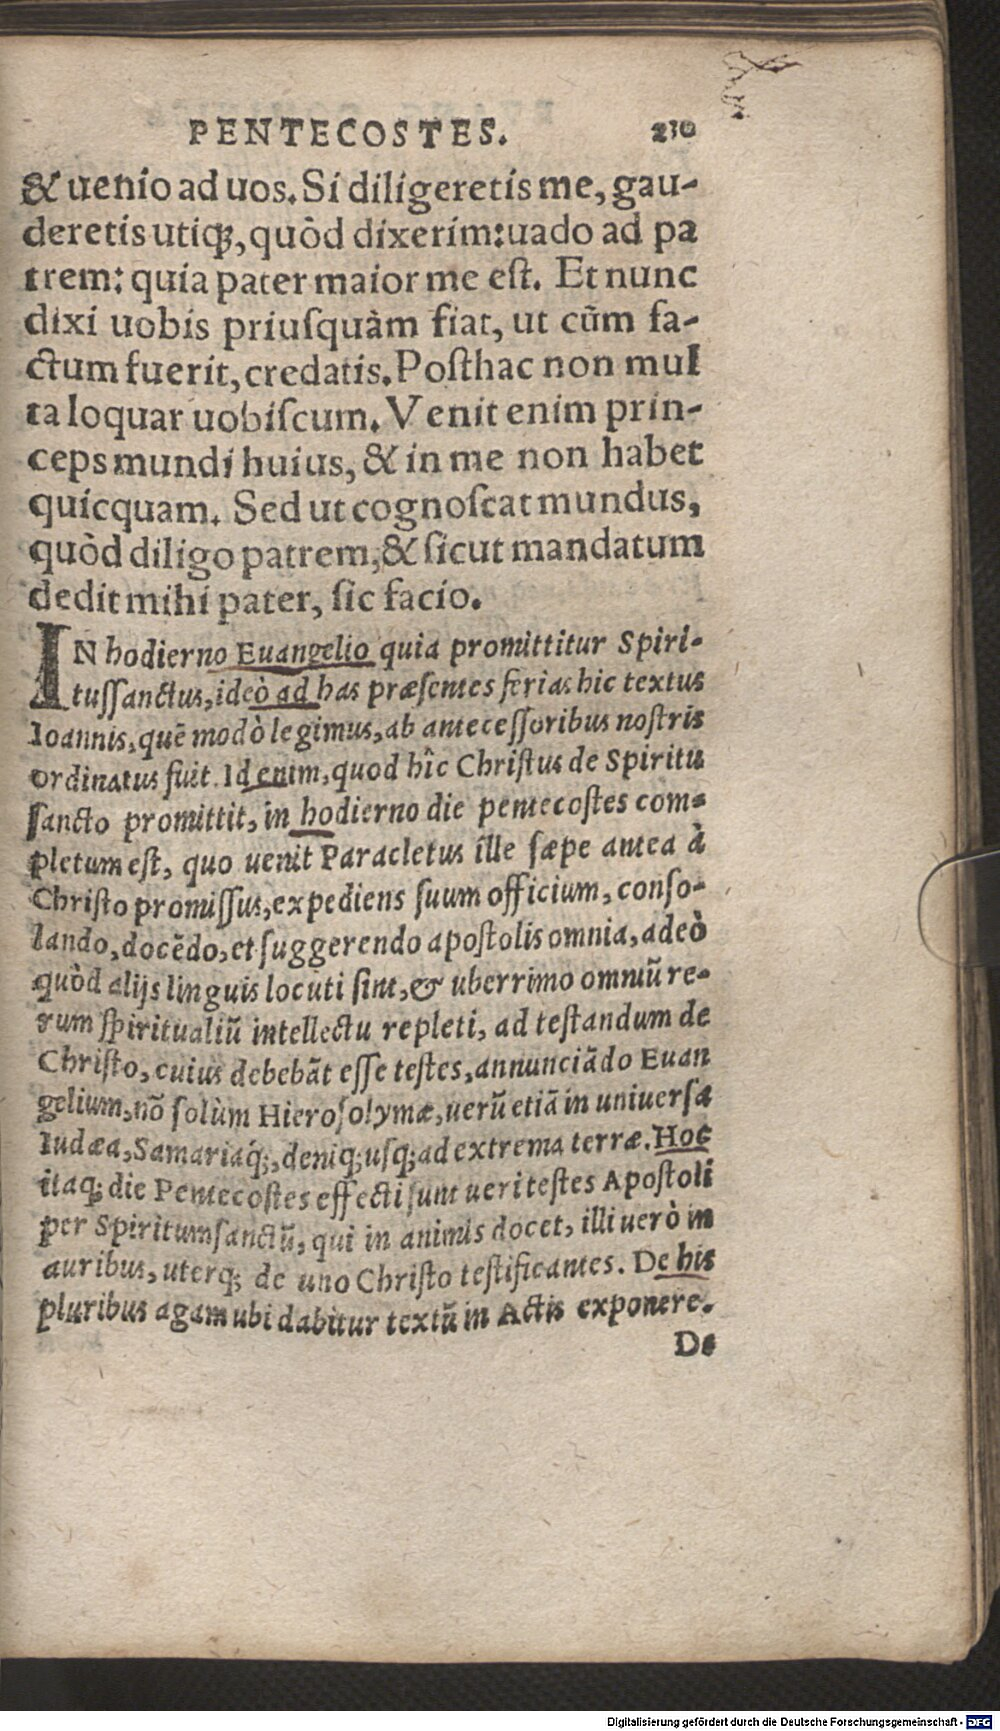 PENTECOSTES. 230
& uenio ad uos. Si diligeretis me, gau-
deretis utiqꝫ, quòd dixerim: uado ad pa
trem: quia pater maior me est. Et nunc
dixi uobis priuſquàm fiat, ut cũm fa-
ctum fuerit, credatis. Poſthac non mul
ta loquar uobiſcum. Venit enim prin-
ceps mundi huius, & in me non habet
quicquam. Sed ut cognoſcat mundus,
quòd diligo patrem, & ſicut mandatum
dedit mihi pater, ſic facio.
IN hodierno Euangelio quia promittitur Spiri-
tuſſanctus, ideò ad has præſentes ferias hic textus
Ioannis, quẽ modò legimus, ab anteceſſoribus noſtris
ordinatus fuit. Id enim, quod hîc Chriſtus de Spiritu
ſancto promittit, in hodierno die pentecoſtes com-
pletum eſt, quo uenit Paracletus ille ſæpe antea à
Chriſto promiſſus, expediens ſuum officium, conſo-
lando, docẽdo, et ſuggerendo apoſtolis omnia, adeò
quòd alijs linguis locuti ſint, & uberrimo omniũ re-
rum ſpiritualiũ intellectu repleti, ad teſtandum de
Chriſto, cuius debebãt eſſe teſtes, annunciãdo Euan
gelium, nõ ſolùm Hieroſolymæ, uerũ etiã in uniuerſa
Iudæa, Samariaq́ꝫ, deniqꝫ uſqꝫ ad extrema terræ. Hoc
itaqꝫ die Pentecoſtes effecti ſunt ueri teſtes Apoſtoli
per Spiritumſanctũ, qui in animis docet, illi uerò in
auribus, uterqꝫ de uno Chriſto teſtificantes. De his
pluribus agam ubi dabitur textũ in Actis exponere.
De
Digitalisierung gefördert durch die Deutsche Forschungsgemeinschaft - DFG